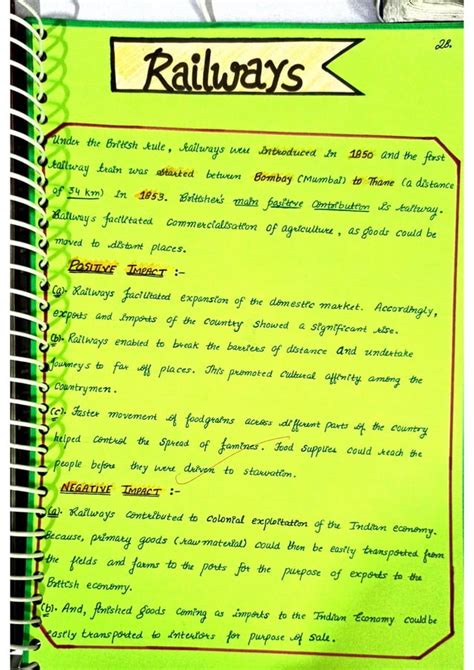 28.
Railways
Under the British rule, railways were introduced in 1850 and the first
railway train was started between Bombay (Mumbai) to Thane (a distance
of 34 km) in 1853. Britisher's main positive contribution is railway.
Railways facilitated commercialisation of agriculture, as goods could be
moved to distant places.
POSITIVE IMPACT :-
(a). Railways facilitated expansion of the domestic market. Accordingly,
exports and imports of the country showed a significant rise.
(b). Railways enabled to break the barriers of distance and undertake
journeys to far off places. This promoted cultural affinity among the
countrymen.
(c). Faster movement of foodgrains across different parts of the country
helped control the spread of famines. Food supplies could reach the
people before they were driven to starvation.
NEGATIVE IMPACT :-
(a). Railways contributed to colonial exploitation of the Indian economy.
Because, primary goods (raw material) could then be easily transported from
the fields and farms to the ports for the purpose of exports to the
British economy.
(b). And, finished goods coming as imports to the Indian Economy could be
easily transported to interiors for purpose of sale.